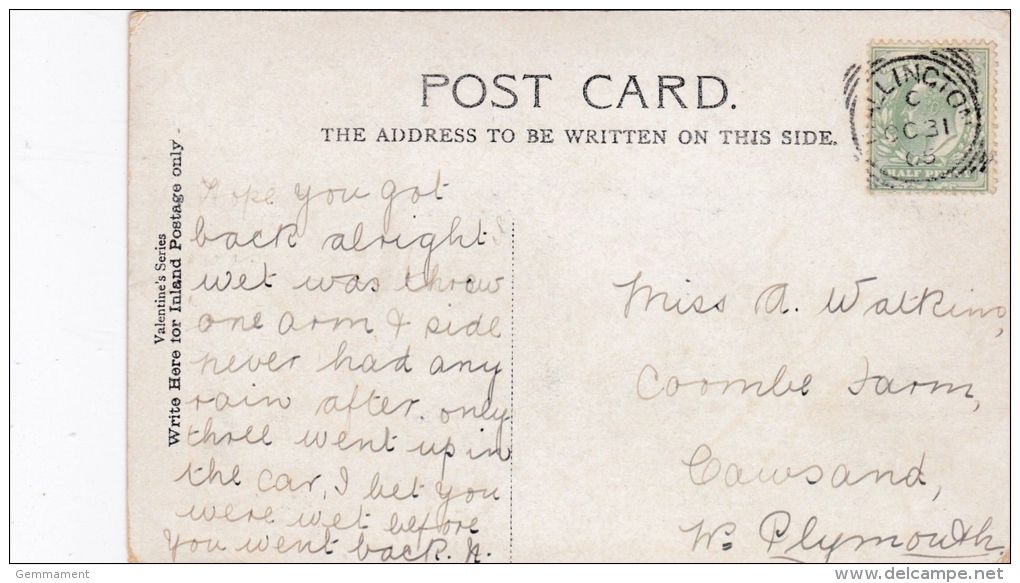 POST CARD.
THE ADDRESS TO BE WRITTEN ON THIS SIDE.
Valentine's Series
Write Here for Inland Postage only.
Hope you got
back alright I
wet was threw
one arm & side
never had any
rain after. only
three went up in
the car, I bet you
were wet before
you went back. A.
Miss A. Watkins,
Coombe Farm,
Cawsand,
Nr Plymouth.
LLINGTON
C
OC 31
05
HALF PENNY
Gemmament
delcampe.net